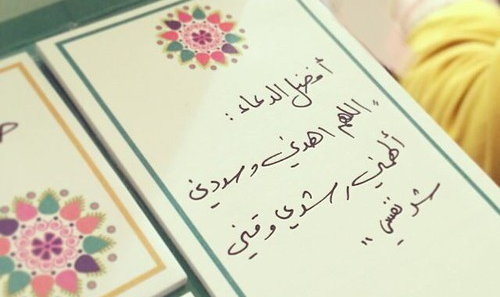 أفضل الدعاء :
" اللهم اهدني وسددني
ألهمني رشدي وقني
شر نفسي "